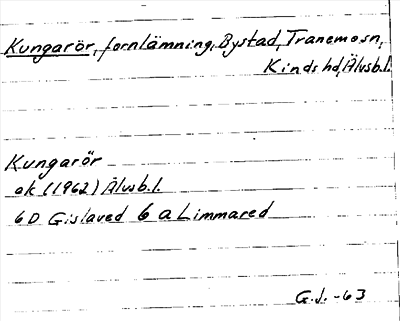 Kungarör, fornlämning, Bystad, Tranemosn,
Kinds hd, Älvsb.l.
Kungarör
ek (1962) Älvsb.l.
6D Gislaved 6 a Limmared
G.J. -63